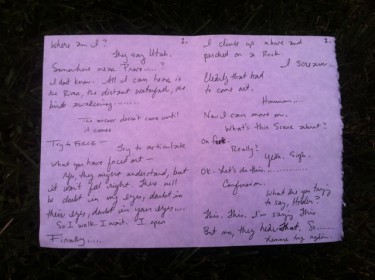 Where am I?
1.
they say Utah.
Somewhere near Provo....?
I dont know. All I can hear is
the River, the distant waterfall, the
birds awakening......
The answer doesn't come until
it comes
Try & Face —
Try to articulate
what you have faced out —
No, they might understand, but
it won't feel right. There will
be doubt in my eyes, doubt in
their eyes, doubt in your eyes....
So I walk. I wait. I open
Finally.....
2.
I climb up above and
perched on a Rock.
I scream...
Clearly that had
to come out.
Hmmmm...
Now I can move on.
What's this scene about?
Oh
Really?
Yeah. Sigh.
OK. Let's do this....
Confession.
What are you trying
to say,
This. This. I'm saying This
But no, they hide that. So......
try again..